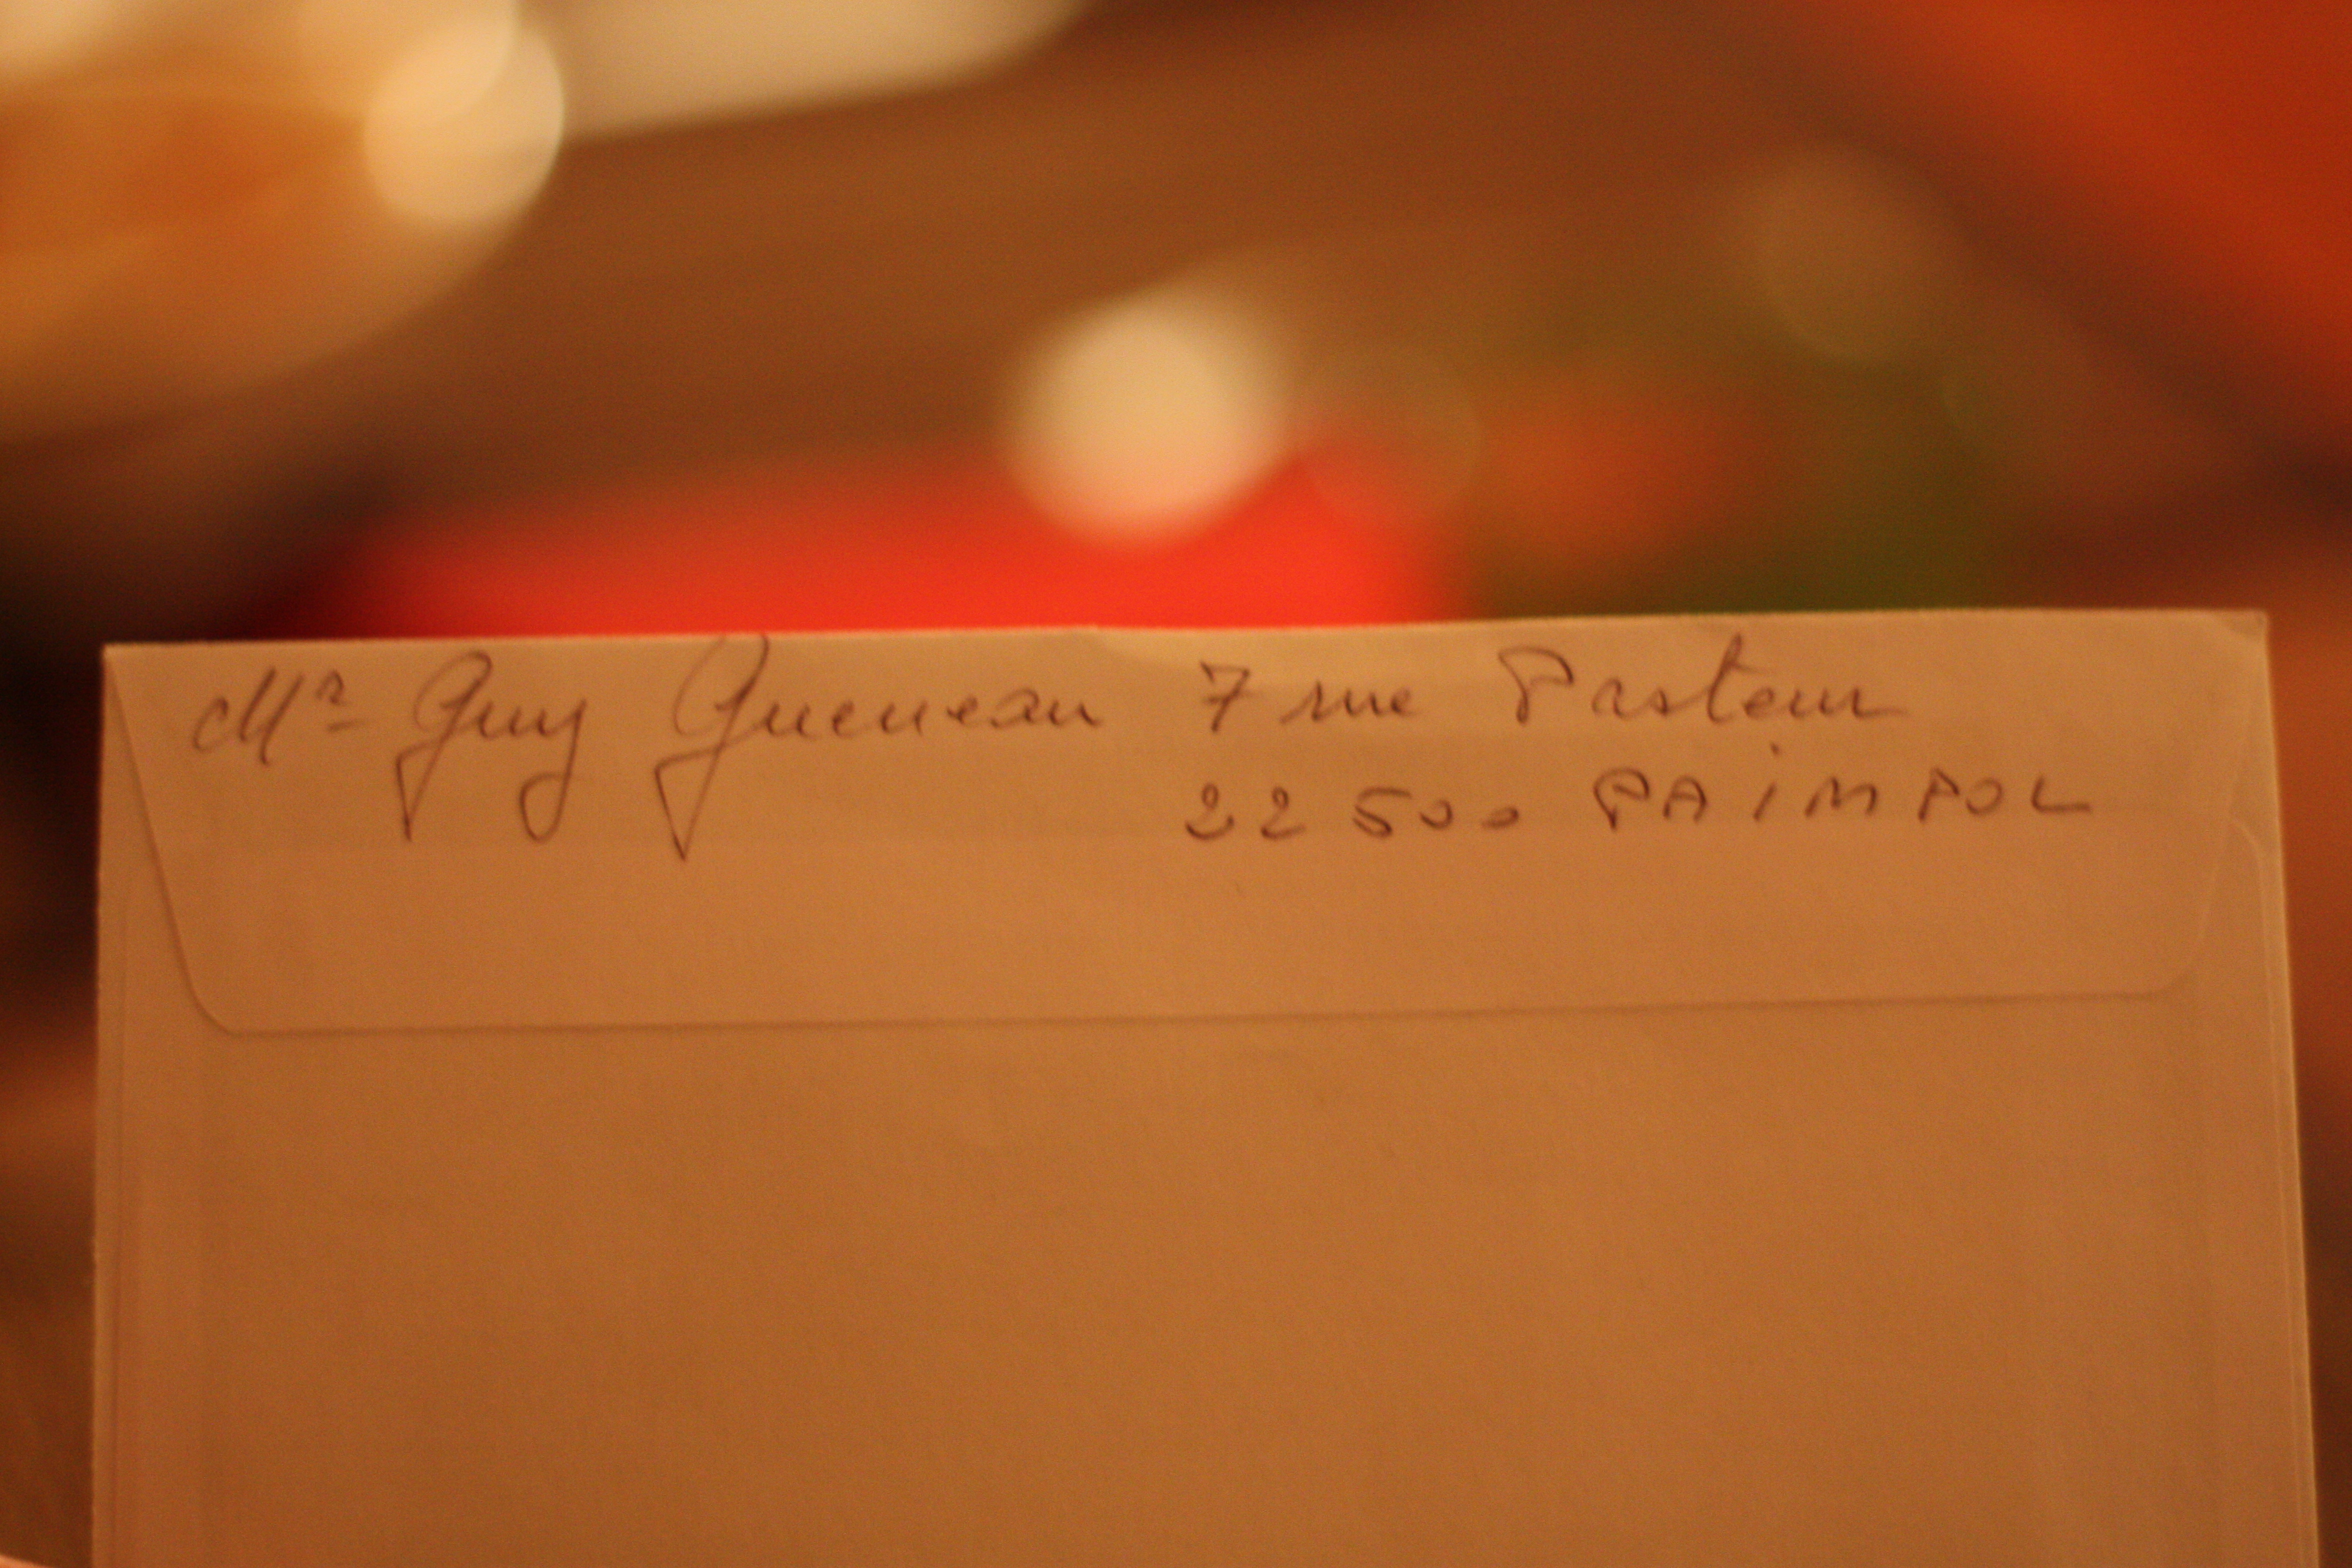 Mr Guy Gueneau 7 rue Pasteur
22500 PAiMPOL